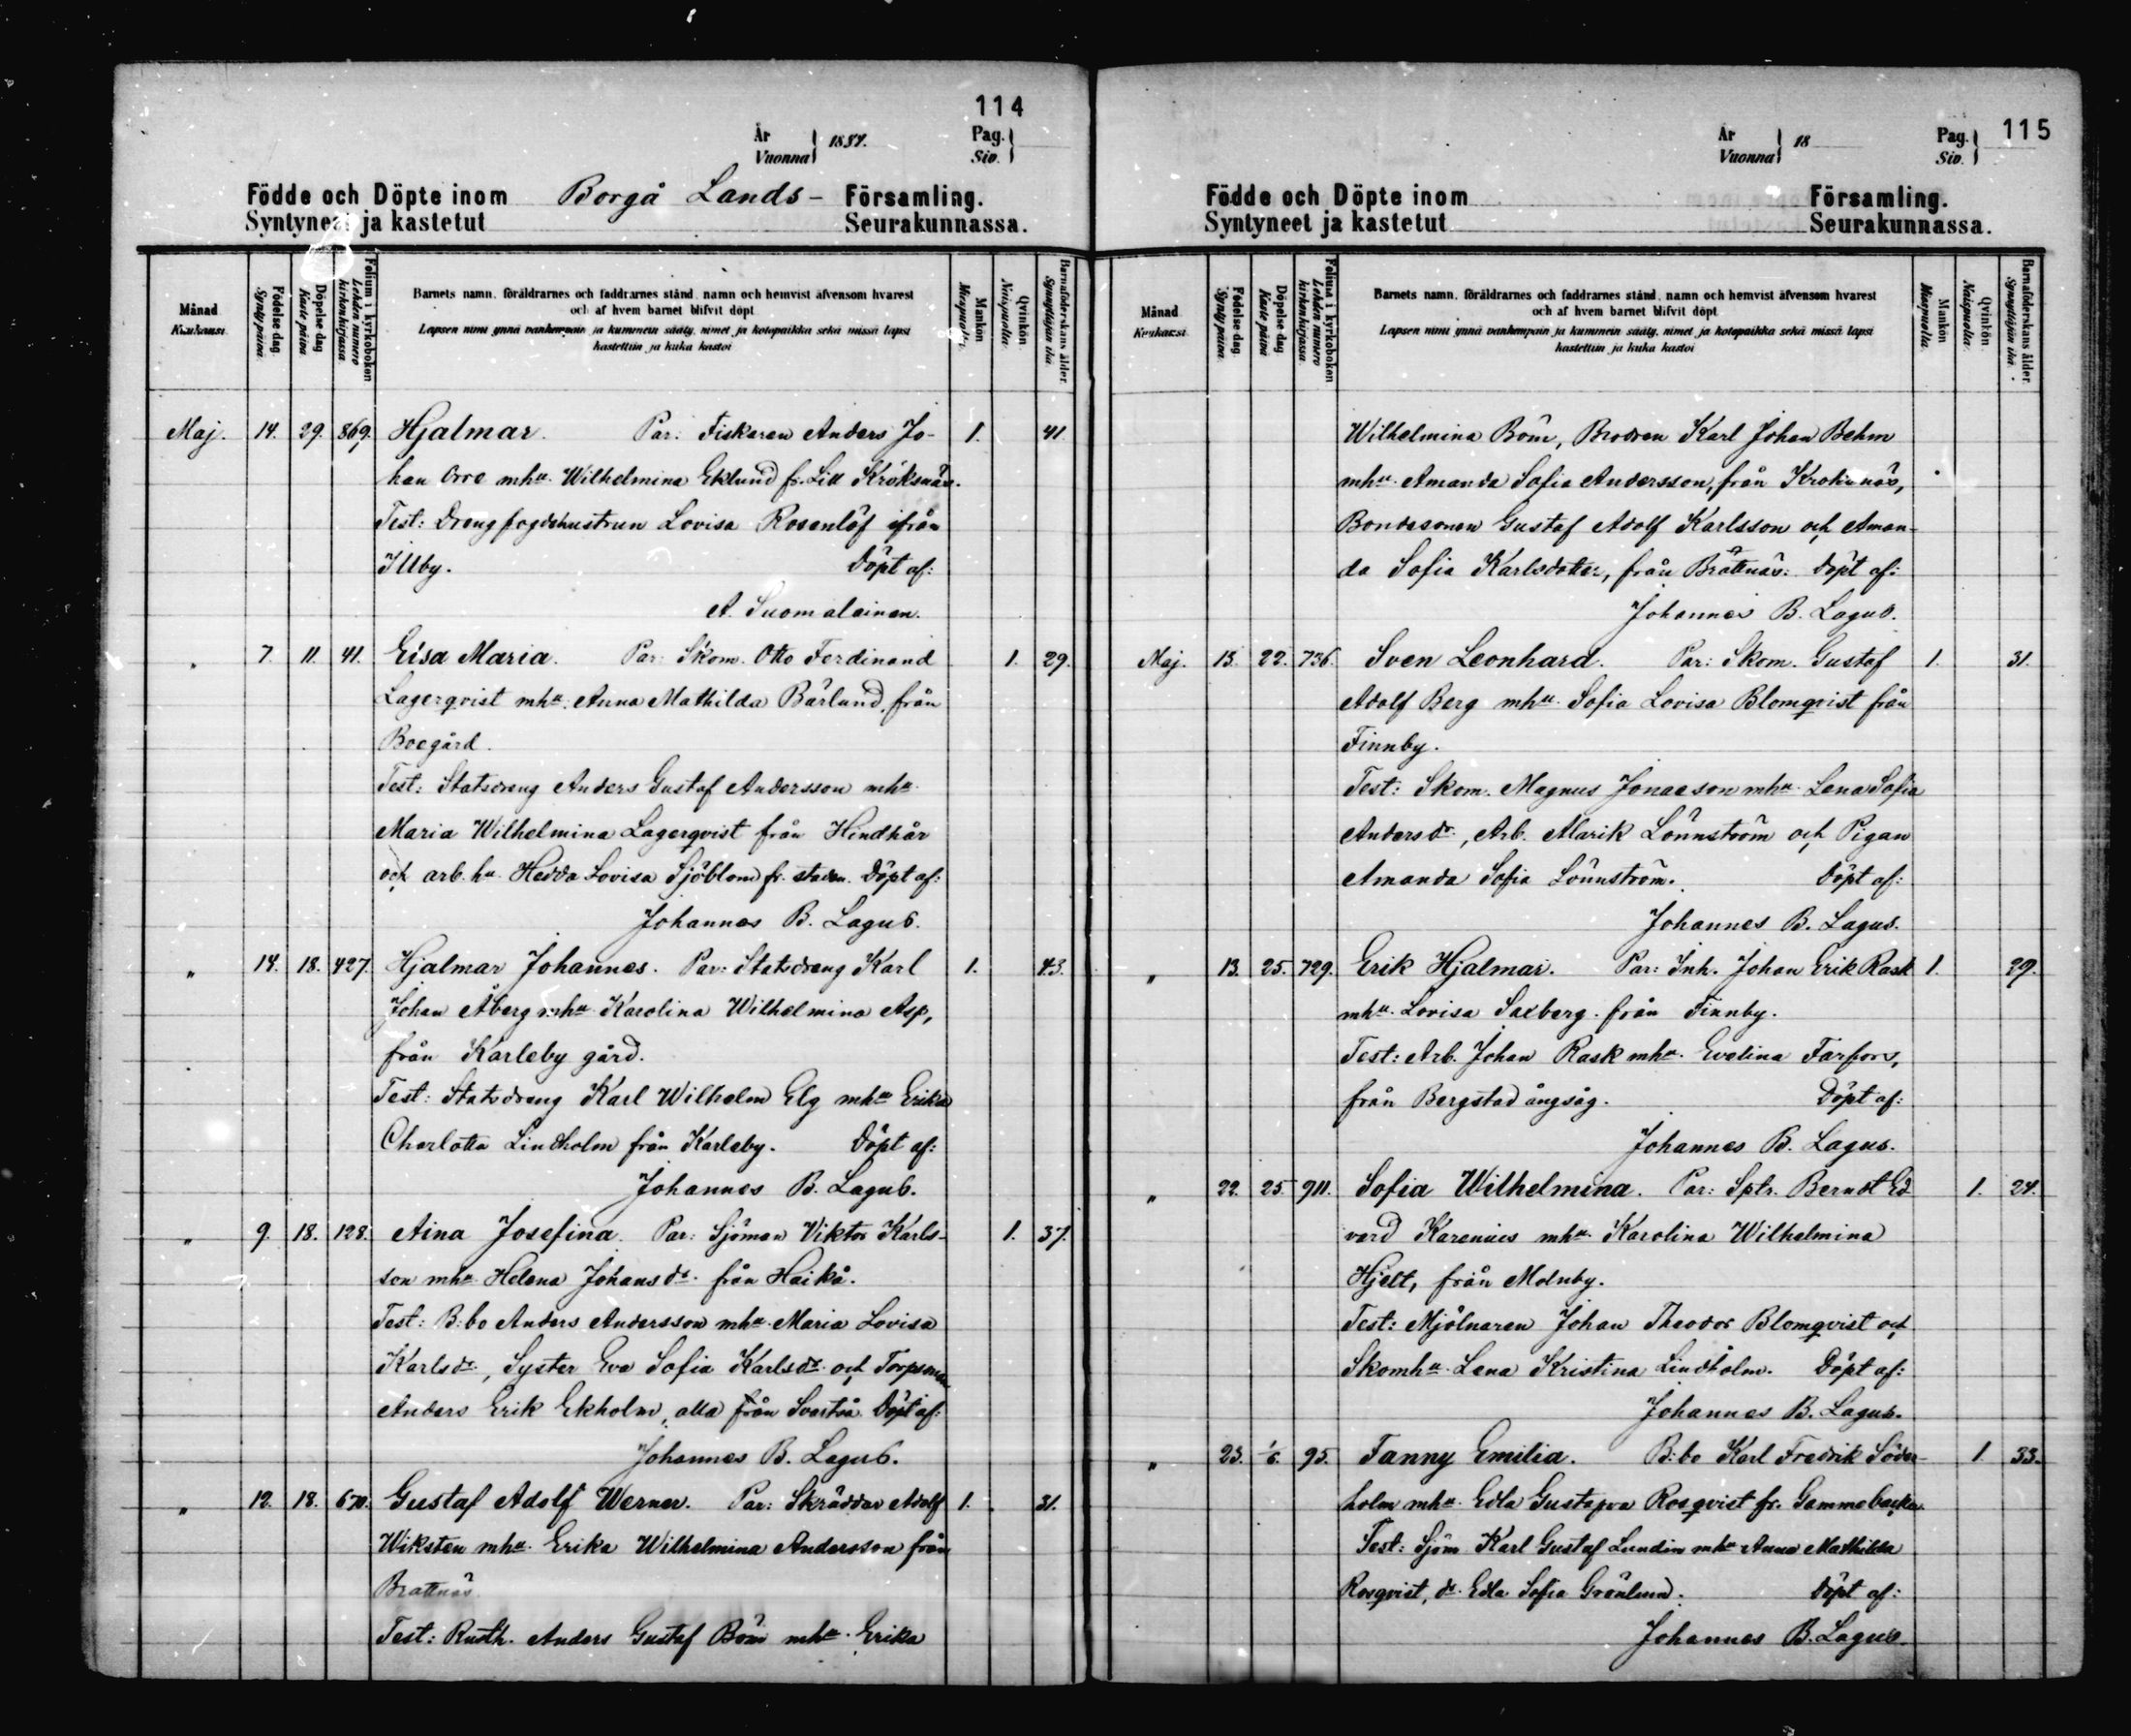 114
År Vuonna 1887. Pag. Siv.
Födde och Döpte inom Borgå Lands- Församling.
Syntyneet ja kastetut Seurakunnassa.
Månad Kuukausi.
Födelse dag. Synty päivä.
Döpelse dag Kaste päivä
Folium i kyrkoboken Lehden numero kirkonkirjassa
Barnets namn, föräldrarnes och faddrarnes stånd, namn och hemvist äfvensom hvarest
och af hvem barnet blifvit döpt
Lapsen nimi ynnä vanhempain ja kummein sääty, nimet ja kotopaikka sekä missä lapsi
kastettiin ja kuka kastoi
Mankön Miespuolia.
Qvinkön. Naispuolia.
Barnaföderskans ålder. Synnyttäjän ikä.
Maj. 14. 29. 869. Hjalmar. Par: Fiskaren Anders Jo- 1. 41.
han Orre mhu. Wilhelmina Eklund fr. Lill Kroksnäs.
Test: Drengfogdehustrun Lovisa Rosenlöf ifrån
Illby. Döpt af:
A. Suomalainen.
" 7. 11. 41. Elsa Maria. Par: Skom. Otto Ferdinand 1. 29.
Lagerqvist mhu. Anna Mathilda Bärlund, från
Boegård.
Test: Statsdreng Anders Gustaf Andersson mhu
Maria Wilhelmina Lagerqvist från Hindhår
och arb. hu. Hedda Lovisa Sjöblom fr. staden. Döpt af:
Johannes B. Lagus.
" 14. 18. 427. Hjalmar Johannes. Par: Statsdreng Karl 1. 43.
Johan Åberg mhu Karolina Wilhelmina Asp,
från Karleby gård.
Test: Statsdreng Karl Wilhelm Elg mhu Erika
Charlotta Lindholm från Karleby. Döpt af:
Johannes B. Lagus.
" 9. 18. 128. Aina Josefina. Par: Sjöman Viktor Karls- 1. 37.
son mhu Helena Johansdr. från Haikå.
Test: B:bo Anders Andersson mhu. Maria Lovisa
Karlsdr., Syster Eva Sofia Karlsdr. och Torpson
Anders Erik Ekholm, alla från Svartså. Döpt af:
Johannes B. Lagus.
" 12. 18. 670. Gustaf Adolf Werner. Par: Skräddar Adolf 1. 31.
Wiksten mhu. Erika Wilhelmina Andersson från
Brattnäs
Test: Rusth. Anders Gustaf Böm mhu. Erika
115
År Vuonna 18 Pag. Siv.
Födde och Döpte inom Församling.
Syntyneet ja kastetut Seurakunnassa.
Månad Kuukausi.
Födelse dag. Synty päivä.
Döpelse dag Kaste päivä
Folium i kyrkoboken Lehden numero kirkonkirjassa
Barnets namn, föräldrarnes och faddrarnes stånd, namn och hemvist äfvensom hvarest
och af hvem barnet blifvit döpt
Lapsen nimi ynnä vanhempain ja kummein sääty, nimet ja kotopaikka sekä missä lapsi
kastettiin ja kuka kastoi
Mankön Miespuolia.
Qvinkön. Naispuolia.
Barnaföderskans ålder. Synnyttäjän ikä.
Wilhelmina Böm, Brodren Karl Johan Behm
mhu. Amanda Sofia Andersson, från Kroksnäs,
Bondesonen Gustaf Adolf Karlsson och Aman-
da Sofia Karlsdotter, från Brattnäs. Döpt af:
Johannes B. Lagus.
Maj. 13. 22. 736. Sven Leonhard. Par: Skom. Gustaf 1. 31.
Adolf Berg mhu. Sofia Lovisa Blomqvist från
Finnby.
Test: Skom. Magnus Jonaeson mhu. Lena Sofia
Andersdr., Arb. Alarik Lönnström och Pigan
Amanda Sofia Lönnström. Döpt af:
Johannes B. Lagus.
" 13. 25. 729. Erik Hjalmar. Par: Inh. Johan Erik Rask 1. 29.
mhu. Lovisa Saxberg. från Finnby.
Test: Arb. Johan Rask mhu. Evelina Farfors,
från Bergstad ångsåg. Döpt af:
Johannes B. Lagus.
" 22. 25. 911. Sofia Wilhelmina. Par: Sptr. Berndt Ed 1. 24.
vard Karenius mhu. Karolina Wilhelmina
Hjelt, från Molnby.
Test: Mjölnaren Johan Theodor Blomqvist och
Skomhu. Lena Kristina Lindholm. Döpt af:
Johannes B. Lagus.
" 23. 1/6. 95. Fanny Emilia. B:bo Karl Fredrik Söder- 1. 33.
holm mhu. Edla Gustafva Rosqvist fr. Gammelbacka.
Test: Sjöm Karl Gustaf Lundin mhu Anna Mathilda
Rosqvist, dr. Edla Sofia Grönlund. Döpt af:
Johannes B. Lagus.